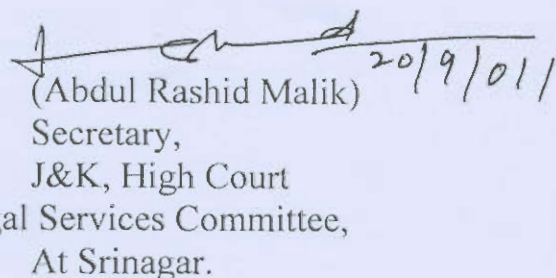 20/9/011
(Abdul Rashid Malik)
Secretary,
J&K, High Court
gal Services Committee,
At Srinagar.